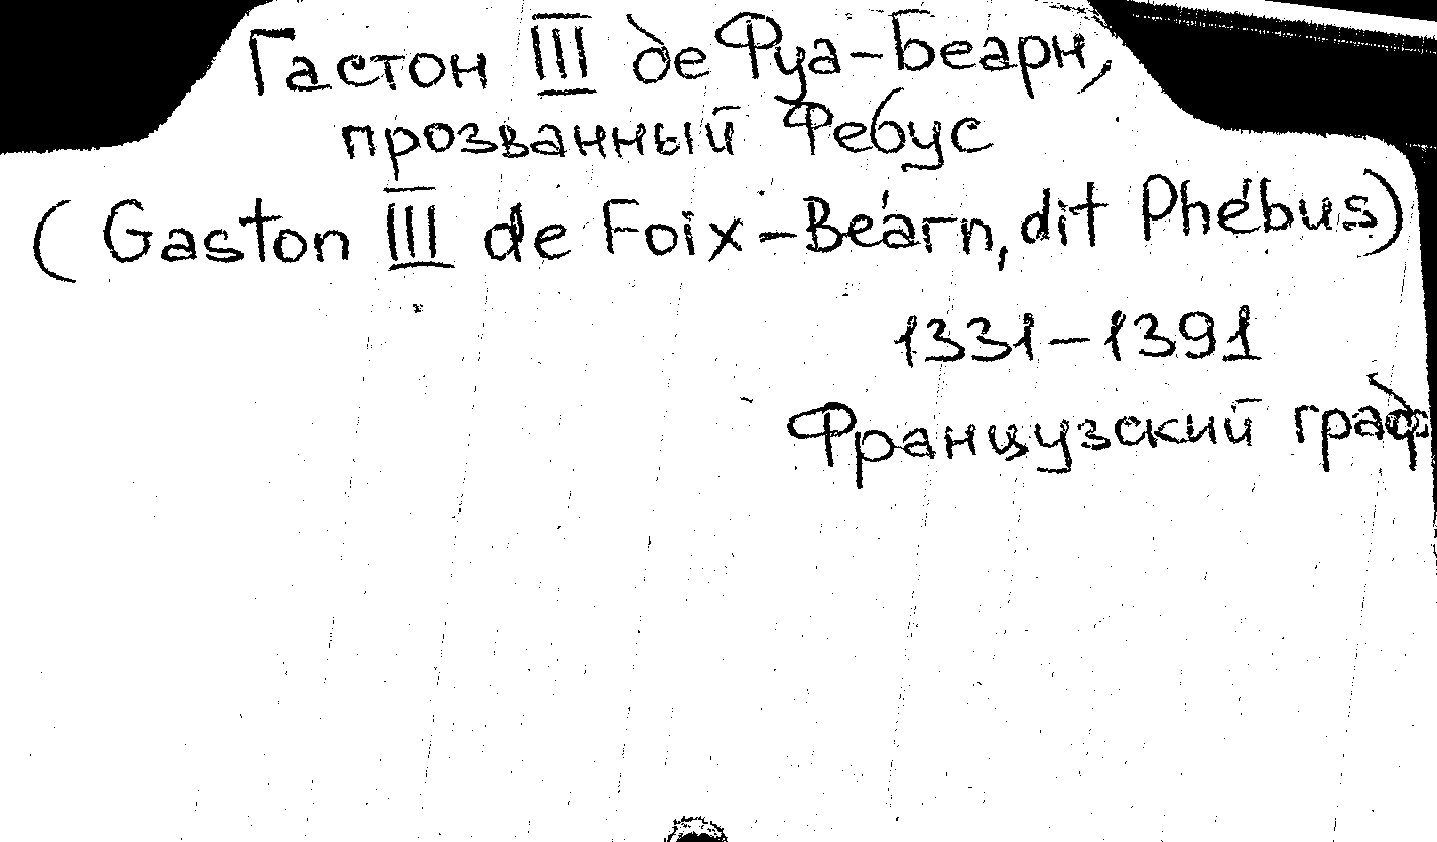 Гастон III де Фуа-Беарн,
прозванный Февус
(Gaston III de Foix-Béarn, dit Phébus)
1331-1391
Французский граф